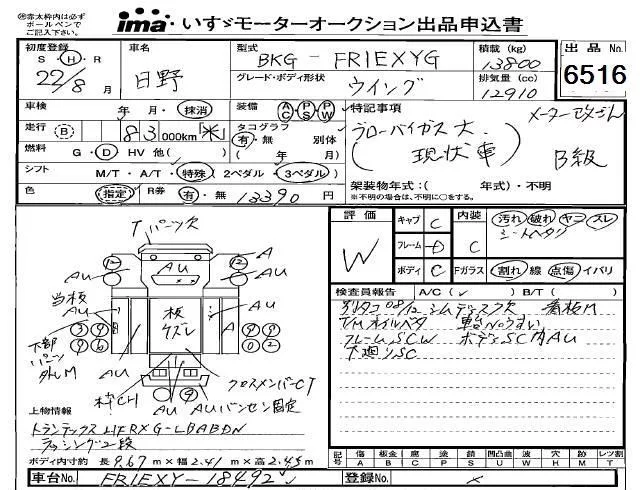 ㊟赤太枠内は必ず
ボールペンで
ご記入下さい。
ima いすゞモーターオークション出品申込書
初度登録 S・H・R 22/8月
車名 日野
型式 BKG-FR1EXYG
グレード・ボディ形状 ウイング
積載 (kg) 13800
排気量 (cc) 12910
出品No. 6516
車検 年 月・抹消
装備 AC・PS・PW
特記事項 メーター改ざん
走行 B 83 000km「米」
タコグラフ 有・無 別体 (年 月)
(現状車) B級
燃料 G・D HV 他( )
シフト M/T・A/T・特殊(2ペダル・3ペダル)
架装物年式:( 年式)・不明
※不明の場合は、不明に○をする。
色 指定 R券 有・無 13390 円
評価 W
キャブ C
フレーム D
ボディ C
内装 C
汚れ 破れ ヤコ スレ
シートヘタリ
Fガラス 割れ 線 点傷 イバリ
検査員報告 A/C(✓) B/T( )
T/Mオイルベタ 車台Noうすい
フレームSCW ボディSC内AU
下廻りSC
Tパーツ欠
A
12 12
AU AU AU
当板
板
ケズレ
A
下部
パーツ
外しM
クロスメンバーCT
AU AU AUバンセン固定
上物情報
トランテックス
ラッシング2段
ボディ内寸約 長9.67m×幅2.41m×高2.45m
記号 傷A 凹B 腐C 塗P 錆S 凹凸曲U 波W 穴H 飛M レンズ割T
車台No. FR1EXY-18492
登録No. ×